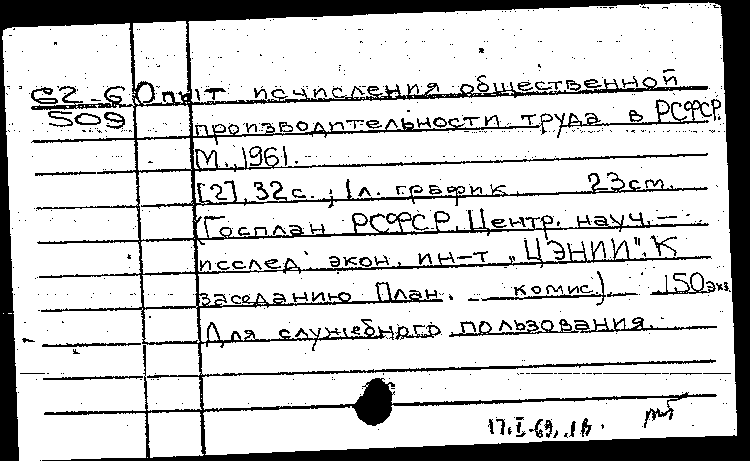 62-6 Опыт исчисления общественной
509 производительности труда в РСФСР.
М., 1961.
[2], 32 с.; 1 л. график. 23 см.
(Госплан РСФСР. Центр. науч.-
исслед. экон. ин-т „ЦЭНИИ". К
заседанию План. комис.) 150 экз.
Для служебного пользования.
17.I-69, 1в.